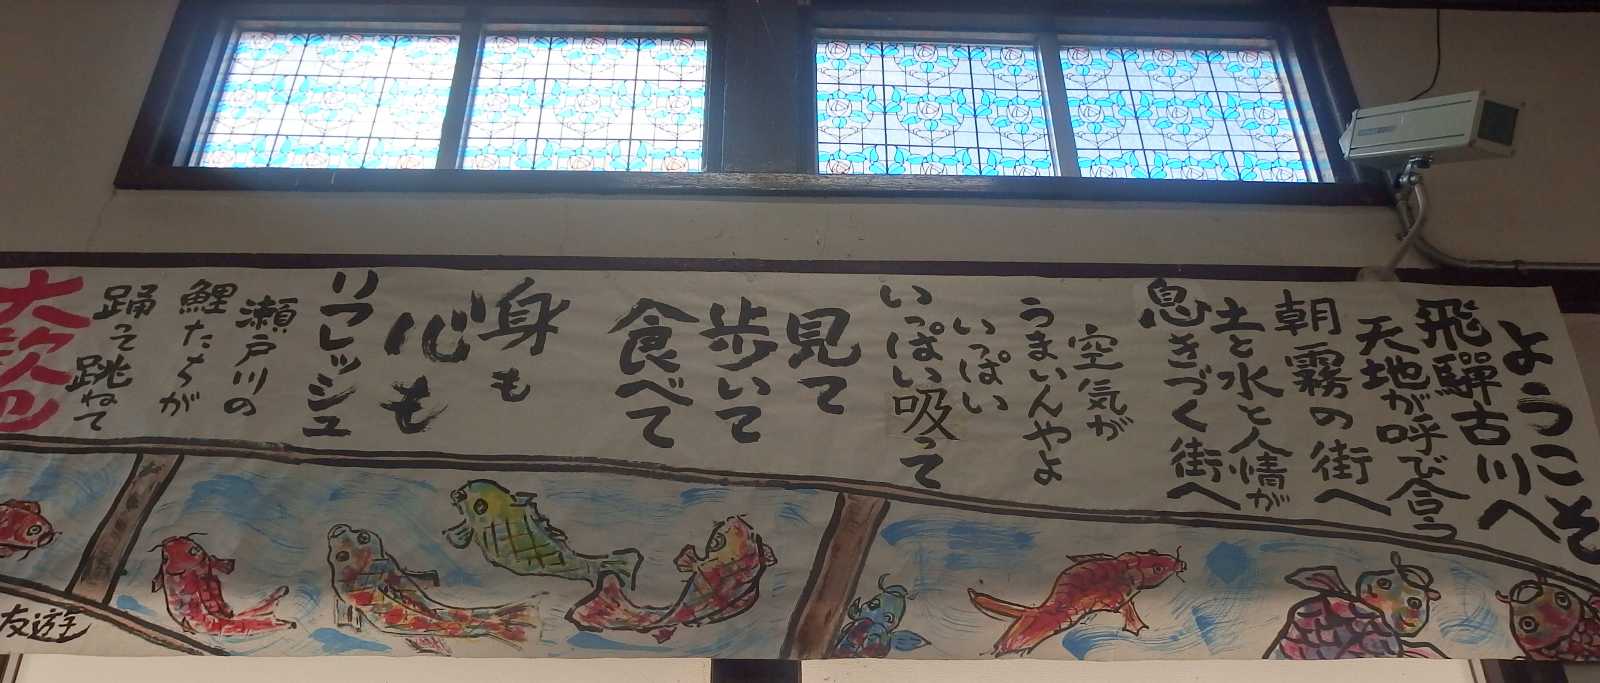 ようこそ
飛騨古川へ
天地が呼び合う
朝霧の街へ
土と水と人情が
息きづく街へ
空気が
うまいんやよ
いっぱい
いっぱい吸って
見て
歩いて
食べて
身も
心も
リフレッシュ
瀬戸川の
鯉たちが
踊って
跳ねて
大歓迎